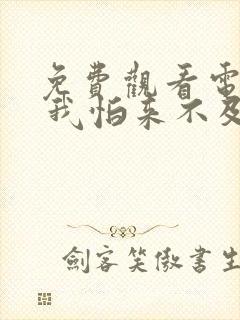 免費觀看電
我怕來不及
劍客笑傲書生